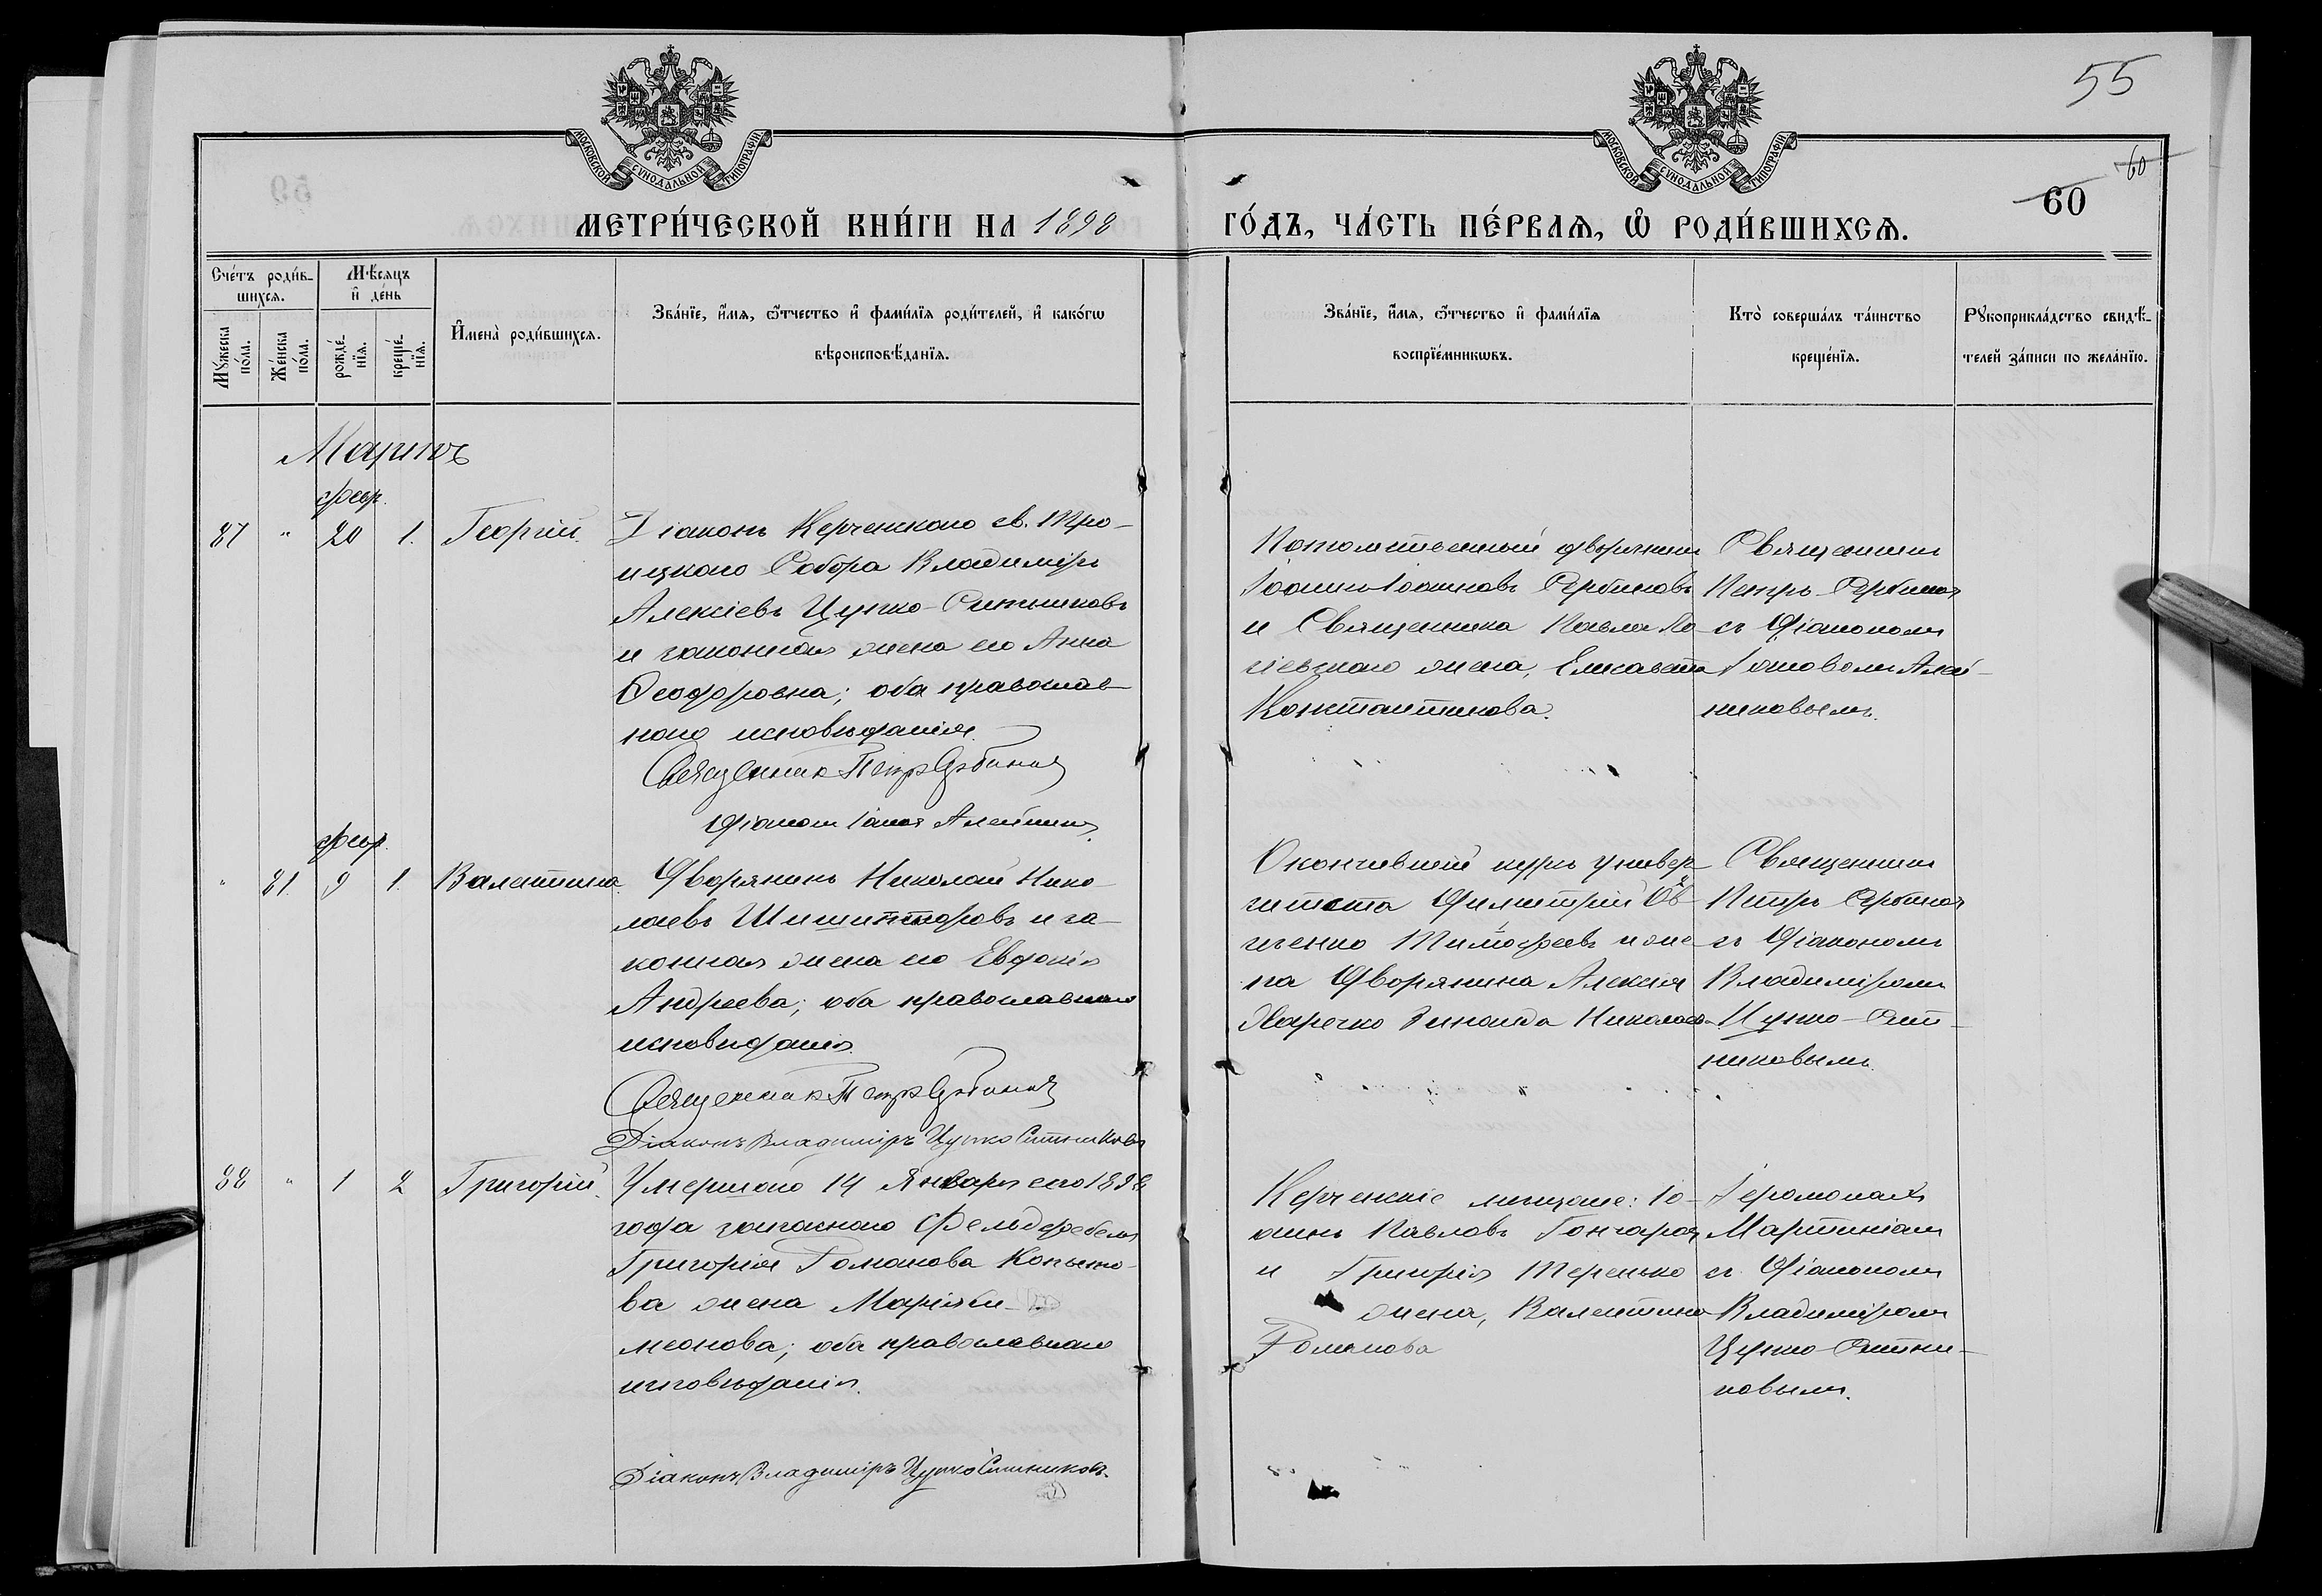 55
60
60
МОСКОВСКОЙ СѴНОДАЛЬНОЙ ТИПОГРАФІИ
МОСКОВСКОЙ СѴНОДАЛЬНОЙ ТИПОГРАФІИ
МЕТРИ́ЧЕСКОЙ КНИ́ГИ НА 1898
ГО́ДЪ, ЧА́СТЬ ПЕ́РВАѦ, Ѽ РОДИ́ВШИХСѦ.
Сче́тъ роди́в-
шихсѧ.
Мѣ́сѧцъ
и҆ де́нь
Мꙋ́жеска
по́ла.
Же́нска
по́ла.
рожде́-
нїѧ.
креще́-
нїѧ.
И҆мена̀ роди́вшихсѧ.
Зва́нїе, и҆́мѧ, ѻ҆́тчество и҆ фами́лїѧ роди́телей, и҆ како́гѡ
вѣроисповѣ́данїѧ.
Зва́нїе, и҆́мѧ, ѻ҆́тчество и҆ фами́лїѧ
воспрїе́мникѡвъ.
Кто̀ соверша́лъ та́инство
креще́нїѧ.
Рꙋкоприкла́дство свидѣ́-
телей за́писи по жела́нїю.
Мартъ
февр.
87 " 20 1. Георгій.
Діаконъ Керченскаго св. Тро-
ицкаго Собора Владиміръ
Алексіевъ Цупко-Ситниковъ
и законная жена его Анна
Ѳеодоровна; оба православ-
наго исповѣданія.
Священникъ Петръ Сербиновъ
Діаконъ Іаковъ Алейников
Потомственный дворянинъ
Іоаннъ Іоанновъ Сербиновъ
и Священника Павла Ло-
гіевскаго жена, Елисавета
Константинова.
Священникъ
Петръ Сербиновъ
съ Діакономъ
Іаковомъ Алей-
никовымъ.
февр.
" 81. 9 1. Валентина.
Дворянинъ Николай Нико-
лаевъ и за-
конная жена его Евдокія
Андреева; оба православнаго
исповѣданія.
Священникъ Петръ Сербиновъ
Діаконъ Владиміръ Цупко Ситниковъ
Окончившій курсъ универ-
ситета Димитрій Ов-
Тимофеевъ и же-
на Дворянина Алексія
Харечко Зинаида Николаев.
Священникъ
Петръ Сербиновъ
съ Діакономъ
Владиміромъ
Цупко-Сит-
никовымъ.
88 " 1 2 Григорій.
Умершаго 14 Января его 1898
года запаснаго Фельдфебеля
Григорія Романова Копыто-
ва жена Марія Си-
меонова; оба православнаго
исповѣданія.
Діаконъ Владиміръ Цупко Ситниковъ.
Керченскіе мѣщане: Іо-
аннъ Павловъ Гончаровъ
и Григорія Теренько
жена, Валентина
Романова
Іеромонахъ
Мартиніанъ
съ Діакономъ
Владиміромъ
Цупко-Ситни-
ковымъ.